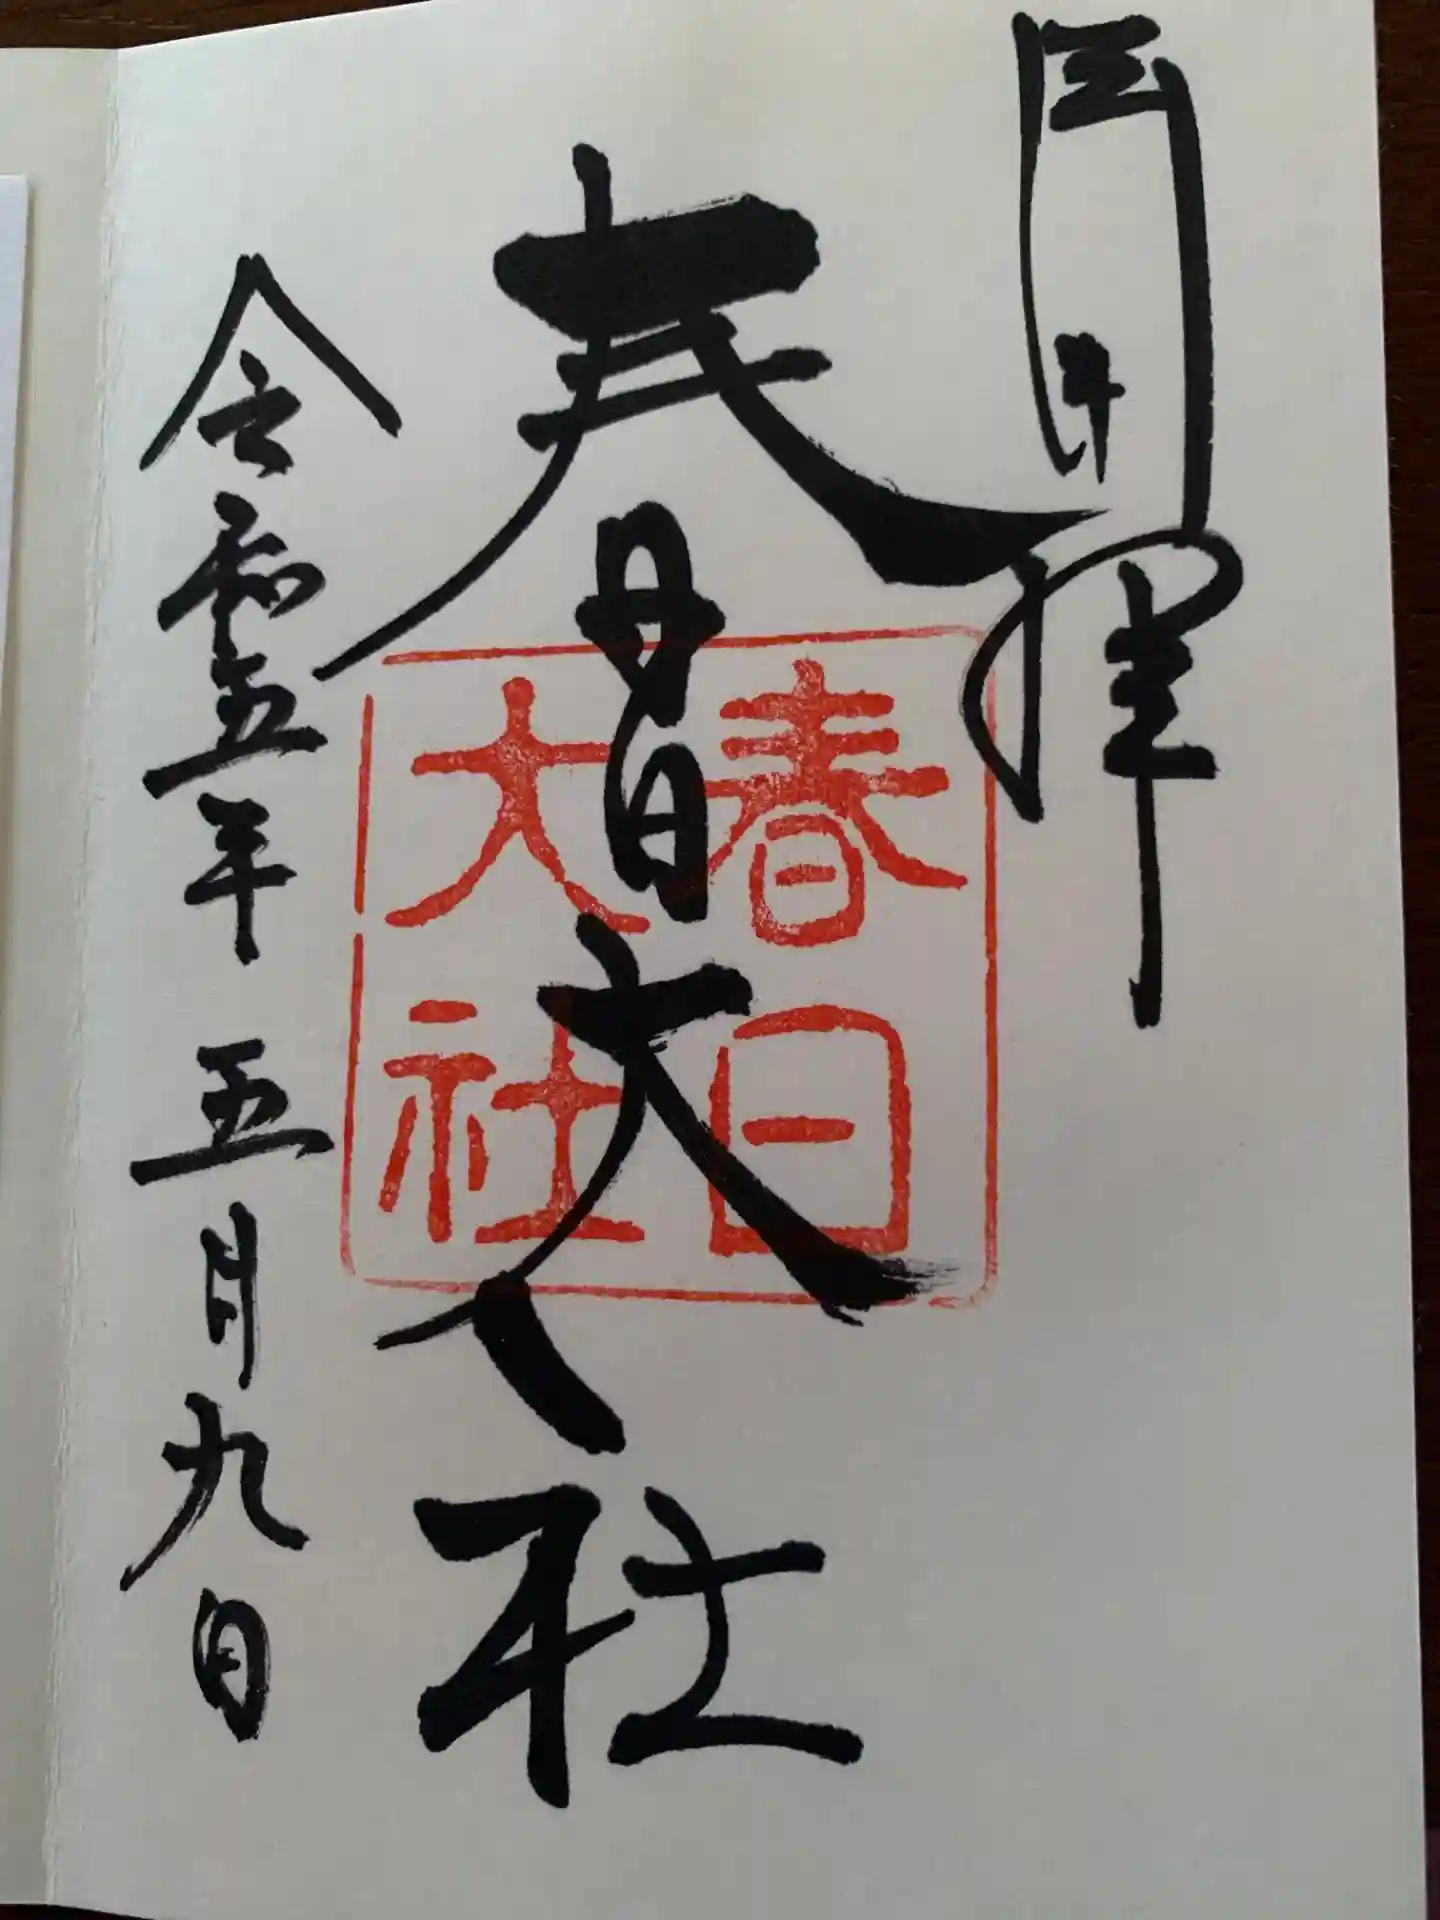 奉拝
春日大社
令和五年 五月九日
春日
大社